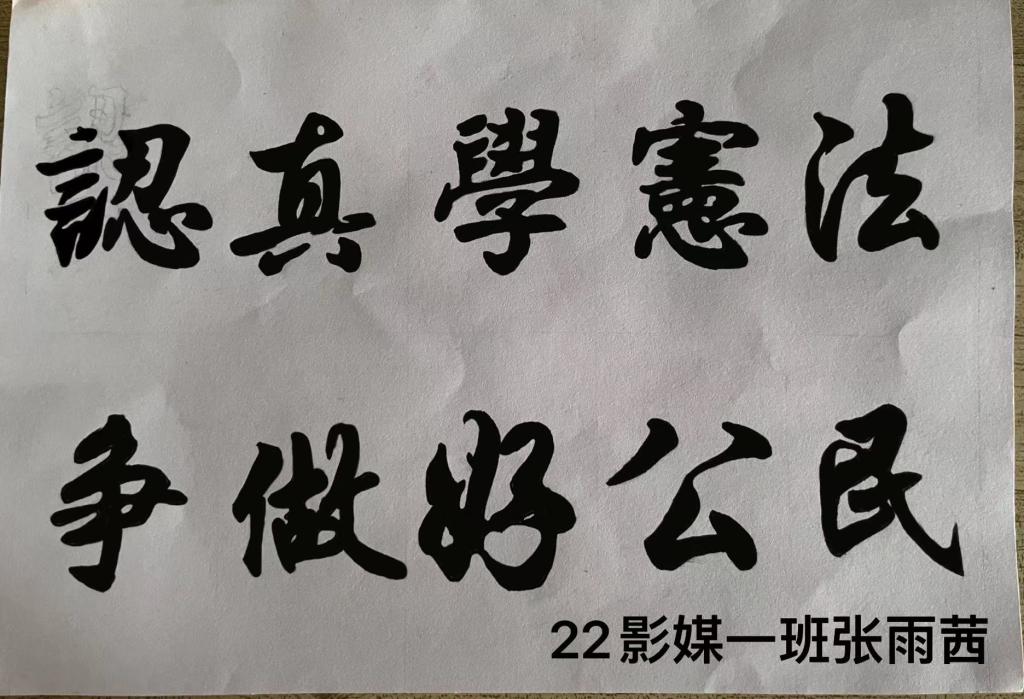 認真學憲法
争做好公民
22影媒一班张雨茜